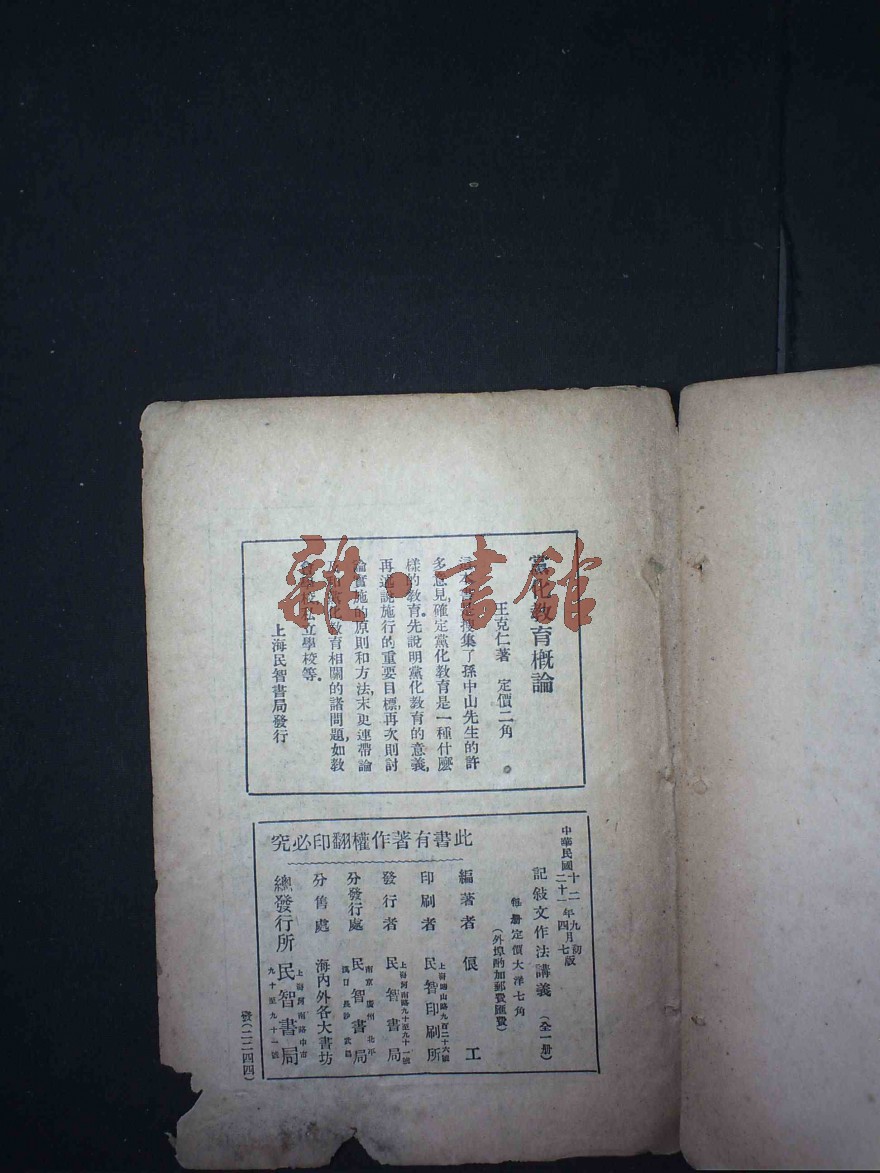 雜·書館
黨化教育概論
王克仁著 定價二角
這本書是搜集了孫中山先生的許
多意見,確定黨化教育是一種什麼
樣的教育。先說明黨化教育的意義,
再述說施行的重要目標,再次則討
論實施的原則和方法,末更連帶論
及和黨化教育相關的諸問題,如教
立學校等。
上海民智書局發行
此書有著作權翻印必究
中華民國十二年九月初版
二十一年四月七版
記敍文作法講義 (全一冊)
每冊定價大洋七角
(外埠酌加郵費匯費)
編著者 俍工
印刷者 民智印刷所
發行者 上海河南路九十至九十一號 民智書局
分發行處 南京 廣州 北平 漢口 長沙 武昌 民智書局
分售處 海內外各大書坊
總發行所 上海河南路中市 九十至九十一號 民智書局
(二二四四)